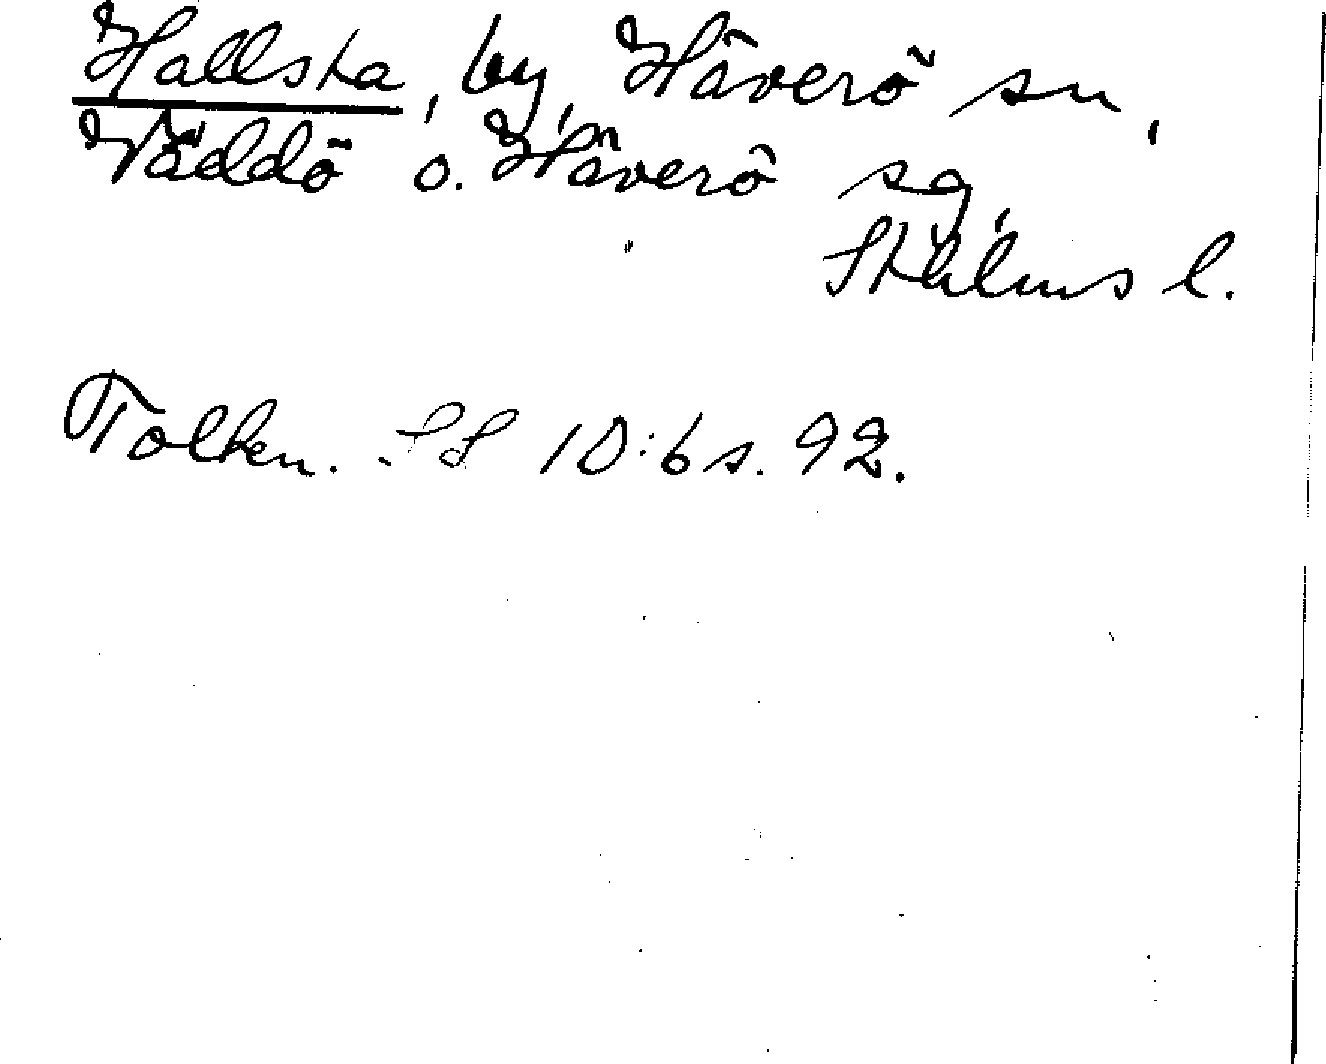 Hallsta, by, Häverö sn,
Väddö o. Häverö sg,
Sthlms l.
Tolkn. SS 10:6 s. 92.